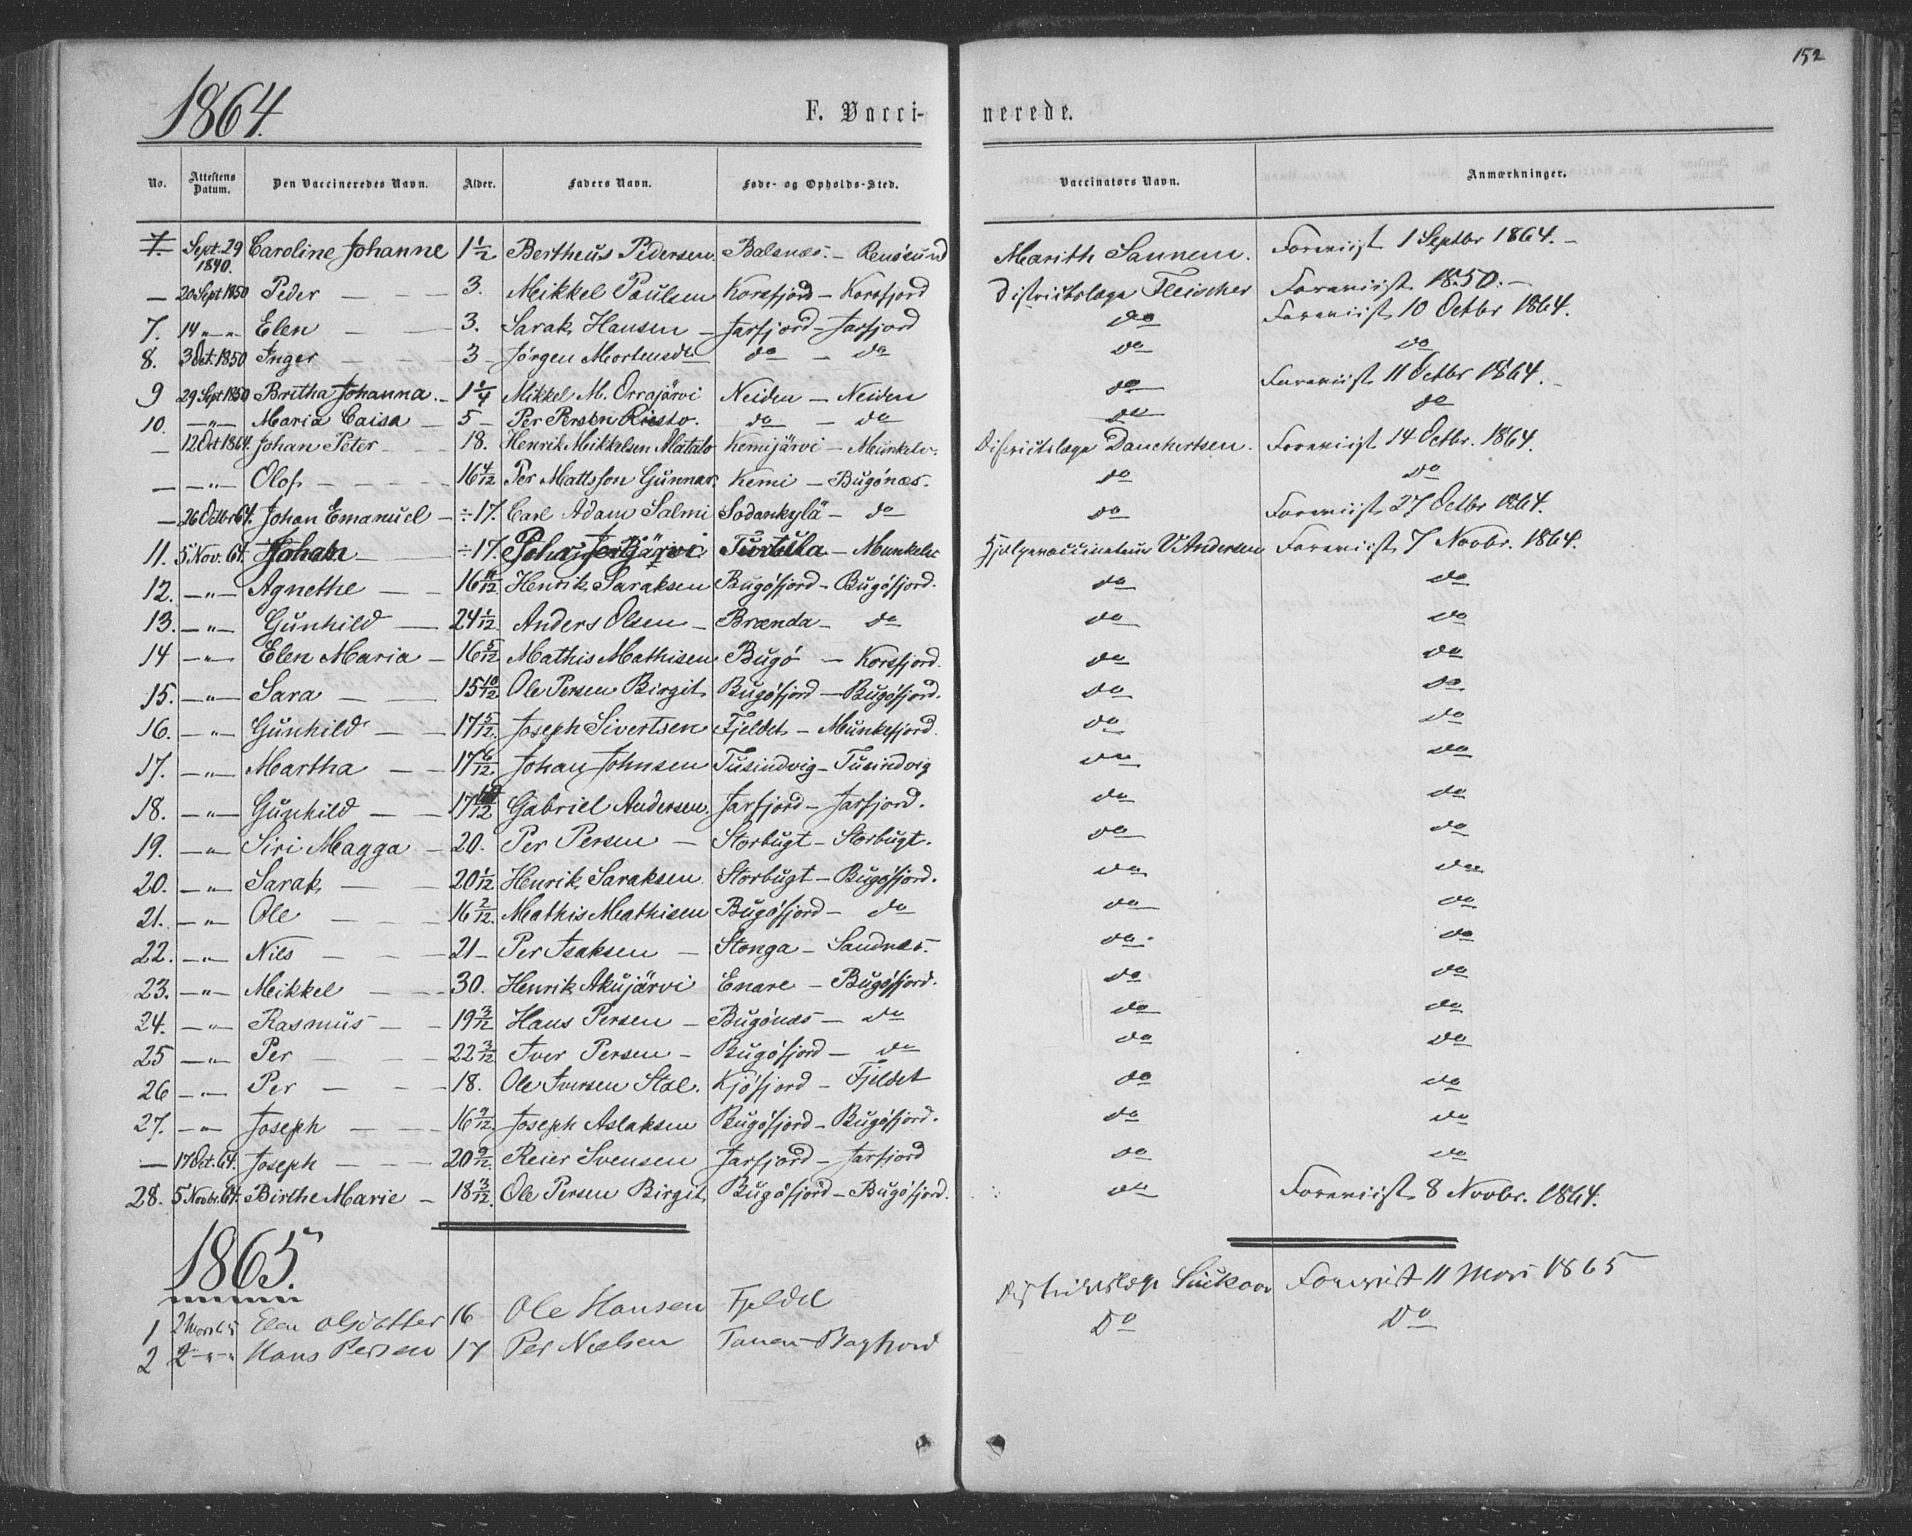 152
1864.
F. Vacci- nerede.
No. Attestens Datum. Den Vaccineredes Navn. Alder. Faders Navn. Føde- og Opholds-Sted. Vaccinators Navn. Anmærkninger.
7. Sept. 29 1840. Caroline Johanne 1 1/2 Bertheus Pedersen Balsnæs. - Renøsund Marith Sannem. Foreviist 1 Septbr 1864. -
— 20 Sept 1850 Peder — — 3. Mikkel Paulsen Korsfjord - Korsfjord Districtslæge Fleischer Foreviist 1850. -
7. 14 " " Elen — — 3. Sarak Hansen - Jarfjord - Jarfjord do Foreviist 10 Octbr 1864.
8. 3 Oct. 1850 Inger — — 3 - Jørgen Mortensen do - do do do
9 29 Sept 1850 Britha Johanna. - 1 1/4 Mikkel M. Orrajärvi Neiden - Neiden do Foreviist 11 Octbr 1864.
10. — " — Maria Caisa — 5 - Per Persen Riesto. do - do do do
— 12 Oct 1864. Johan Peter — 18. Henrik Mikkelsen Matalo Kemijärvi - Munkelv. Districtslæge Danchertsen. Foreviist 14 Octbr. 1864.
— — " — Olof. — — 16 4/12 Per Mattsson Gunnar. Kemi - Bugønæs. do do
— 26 Octbr 64. Johan Emanuel - ÷17. Carl Adam Salmi Sodankylä - do do Foreviist 27 Octbr 1864.
11. 5 Nov. 64. Johan — ÷17. - Munkelv Hjelpevaccinateur Andersen Foreviist 7 Novbr. 1864.
12. — " — Agnethe — — 16 11/12 Henrik Saraksen Bugøfjord - Bugøfjord. do do
13. — " — Gunhild — 24 1/12 Anders Olsen - Brænda - do do do
14 — " — Elen Maria - 16 5/12 Mathis Mathisen Bugø - Korsfjord. do do
15. — " — Sara — 15 10/12 Ole Persen Birgit Bugøfjord - Bugøfjord. do do
16. — " — Gunhild — — 17 5/12. Joseph Sivertsen Fjeldet - Munkefjord. do do
17. — " — Martha — — 17 6/12. Johan Johnsen Tusindvig - Tusindvig do do
18. — " — Gunhild — — 17 10/12 Gabriel Andersen. Jarfjord - Jarfjord. do do
19. — " — Siri Magga - 20. Per Persen - Storbugt - Storbugt. do do
20. — " — Sarak — — 20 1/12 Henrik Saraksen. Storbugt - Bugøfjord. do do
21. — " — Ole — — 16 2/12. Mathis Mathisen Bugøfjord - do do do
22. — " — Nils — — 21 - Per Isaksen - Stonga - Sandnæs. do. do
23. — " — Mikkel — — 30. Henrik Akujärvi Enare - Bugøfjord. do do
24. — " — Rasmus — — 19 3/12 Hans Persen - Bugønæs - do do do
25 — " — Per — — 22 3/12 Iver Persen - Bugøfjord - do do do
26 — " — Per — — 18. Ole Iversen Stal. Kjøfjord - Fjeldet do do
27. — " — Joseph — — 16 9/12. Joseph Aslaksen Bugøfjord - Bugøfjord. do do
— 17 Oct. 64. Joseph — — 20 9/12. Reier Svensen Jarfjord - Jarfjord do do
28. 5 Novbr. 64. Birthe Marie - 18 3/12. Ole Persen Birgit. Bugøfjord - Bugøfjord. do Foreviist 8 Novbr. 1864.
1865.
1 2 Mars 65 Elen Olsdatter 16 Ole Hansen Fjeldet Foreviist 11 Mars 1865
2 2 " " Hans Persen 17 Per Nielsen Tanen - Do Do